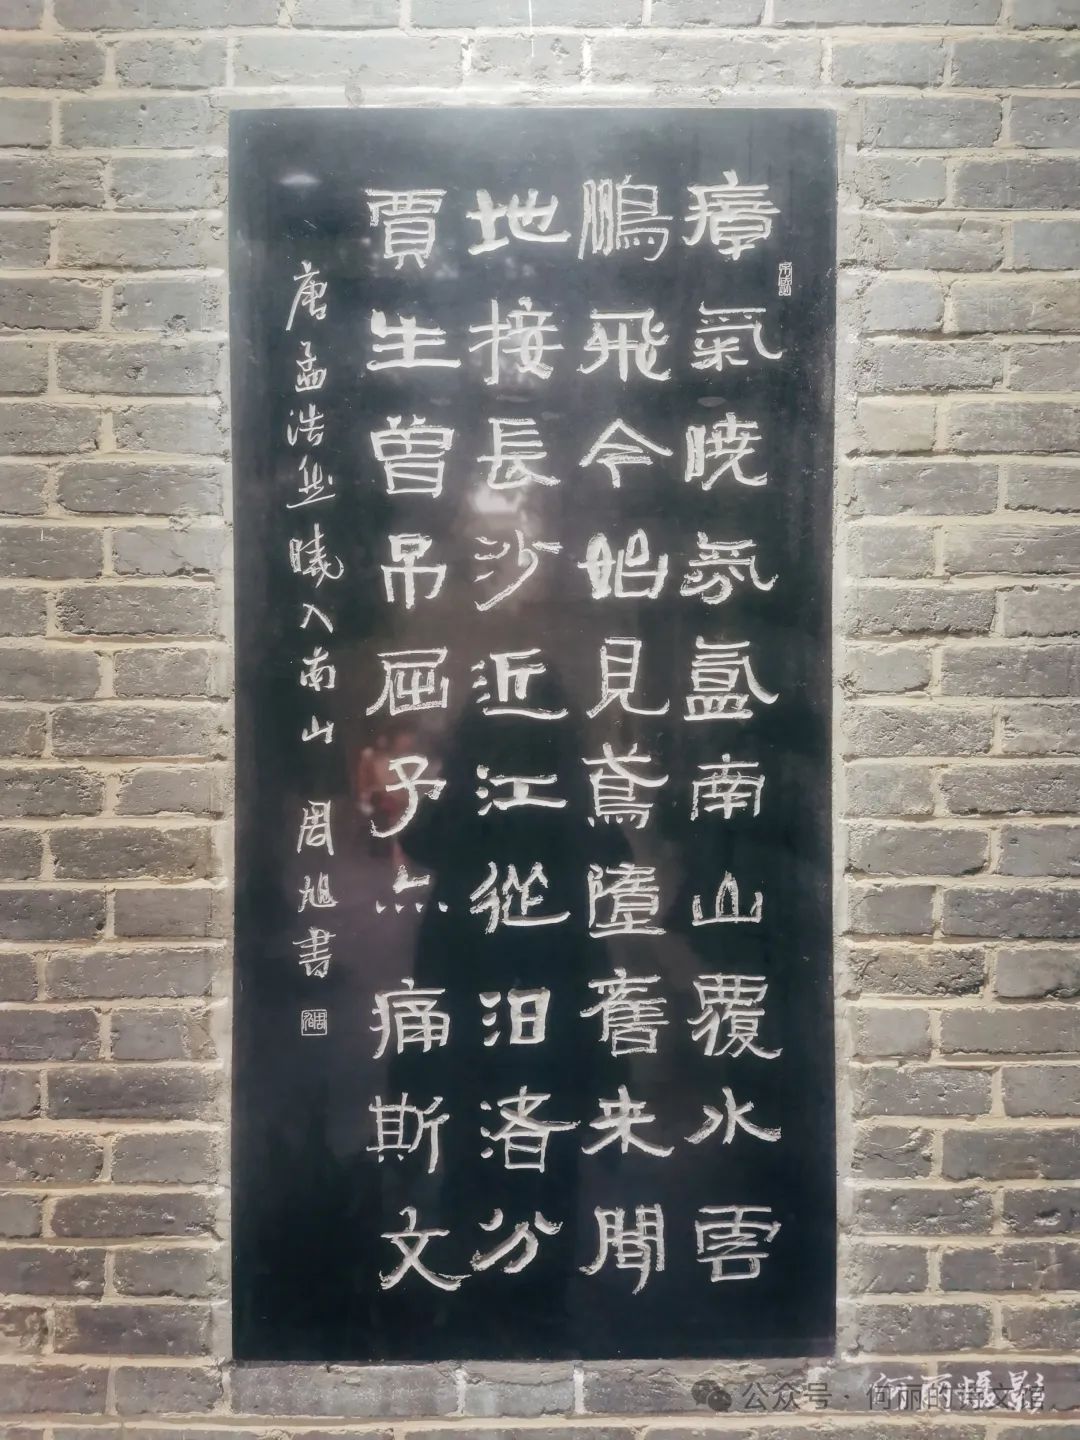 瘴氣暁氛氳南山覆水雲
鵬飛今始見鳶墮舊来聞
地接長沙近江從汨渚分
賈生曾吊屈予亦痛斯文
唐孟浩然曉入南山 周旭書
何丽攝影
公众号·何丽的诗文馆